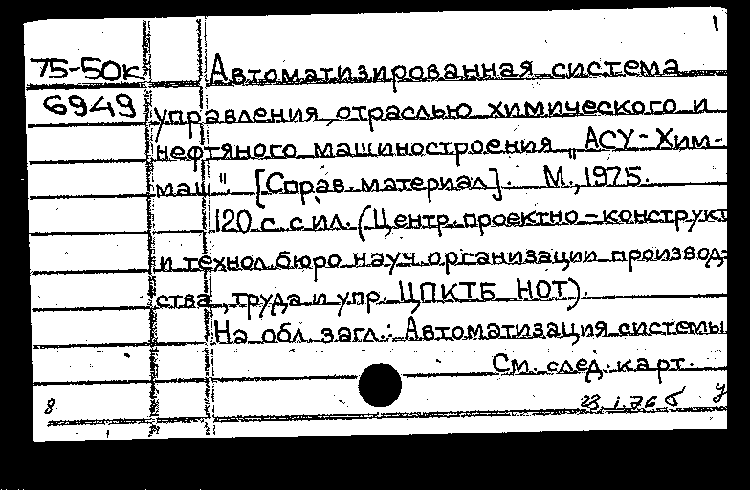 1
75-50к Автоматизированная система
6949 управления отраслью химического и
нефтяного машиностроения „АСУ-Хим-
маш". [Справ. материал]. М., 1975.
120 с. с ил. (Центр. проектно-конструкт
и технол. бюро науч. организации производ-
ства, труда и упр. ЦПКТБ НОТ).
На обл. загл.: Автоматизация системы
См. след. карт.
8 23.1.76 б у